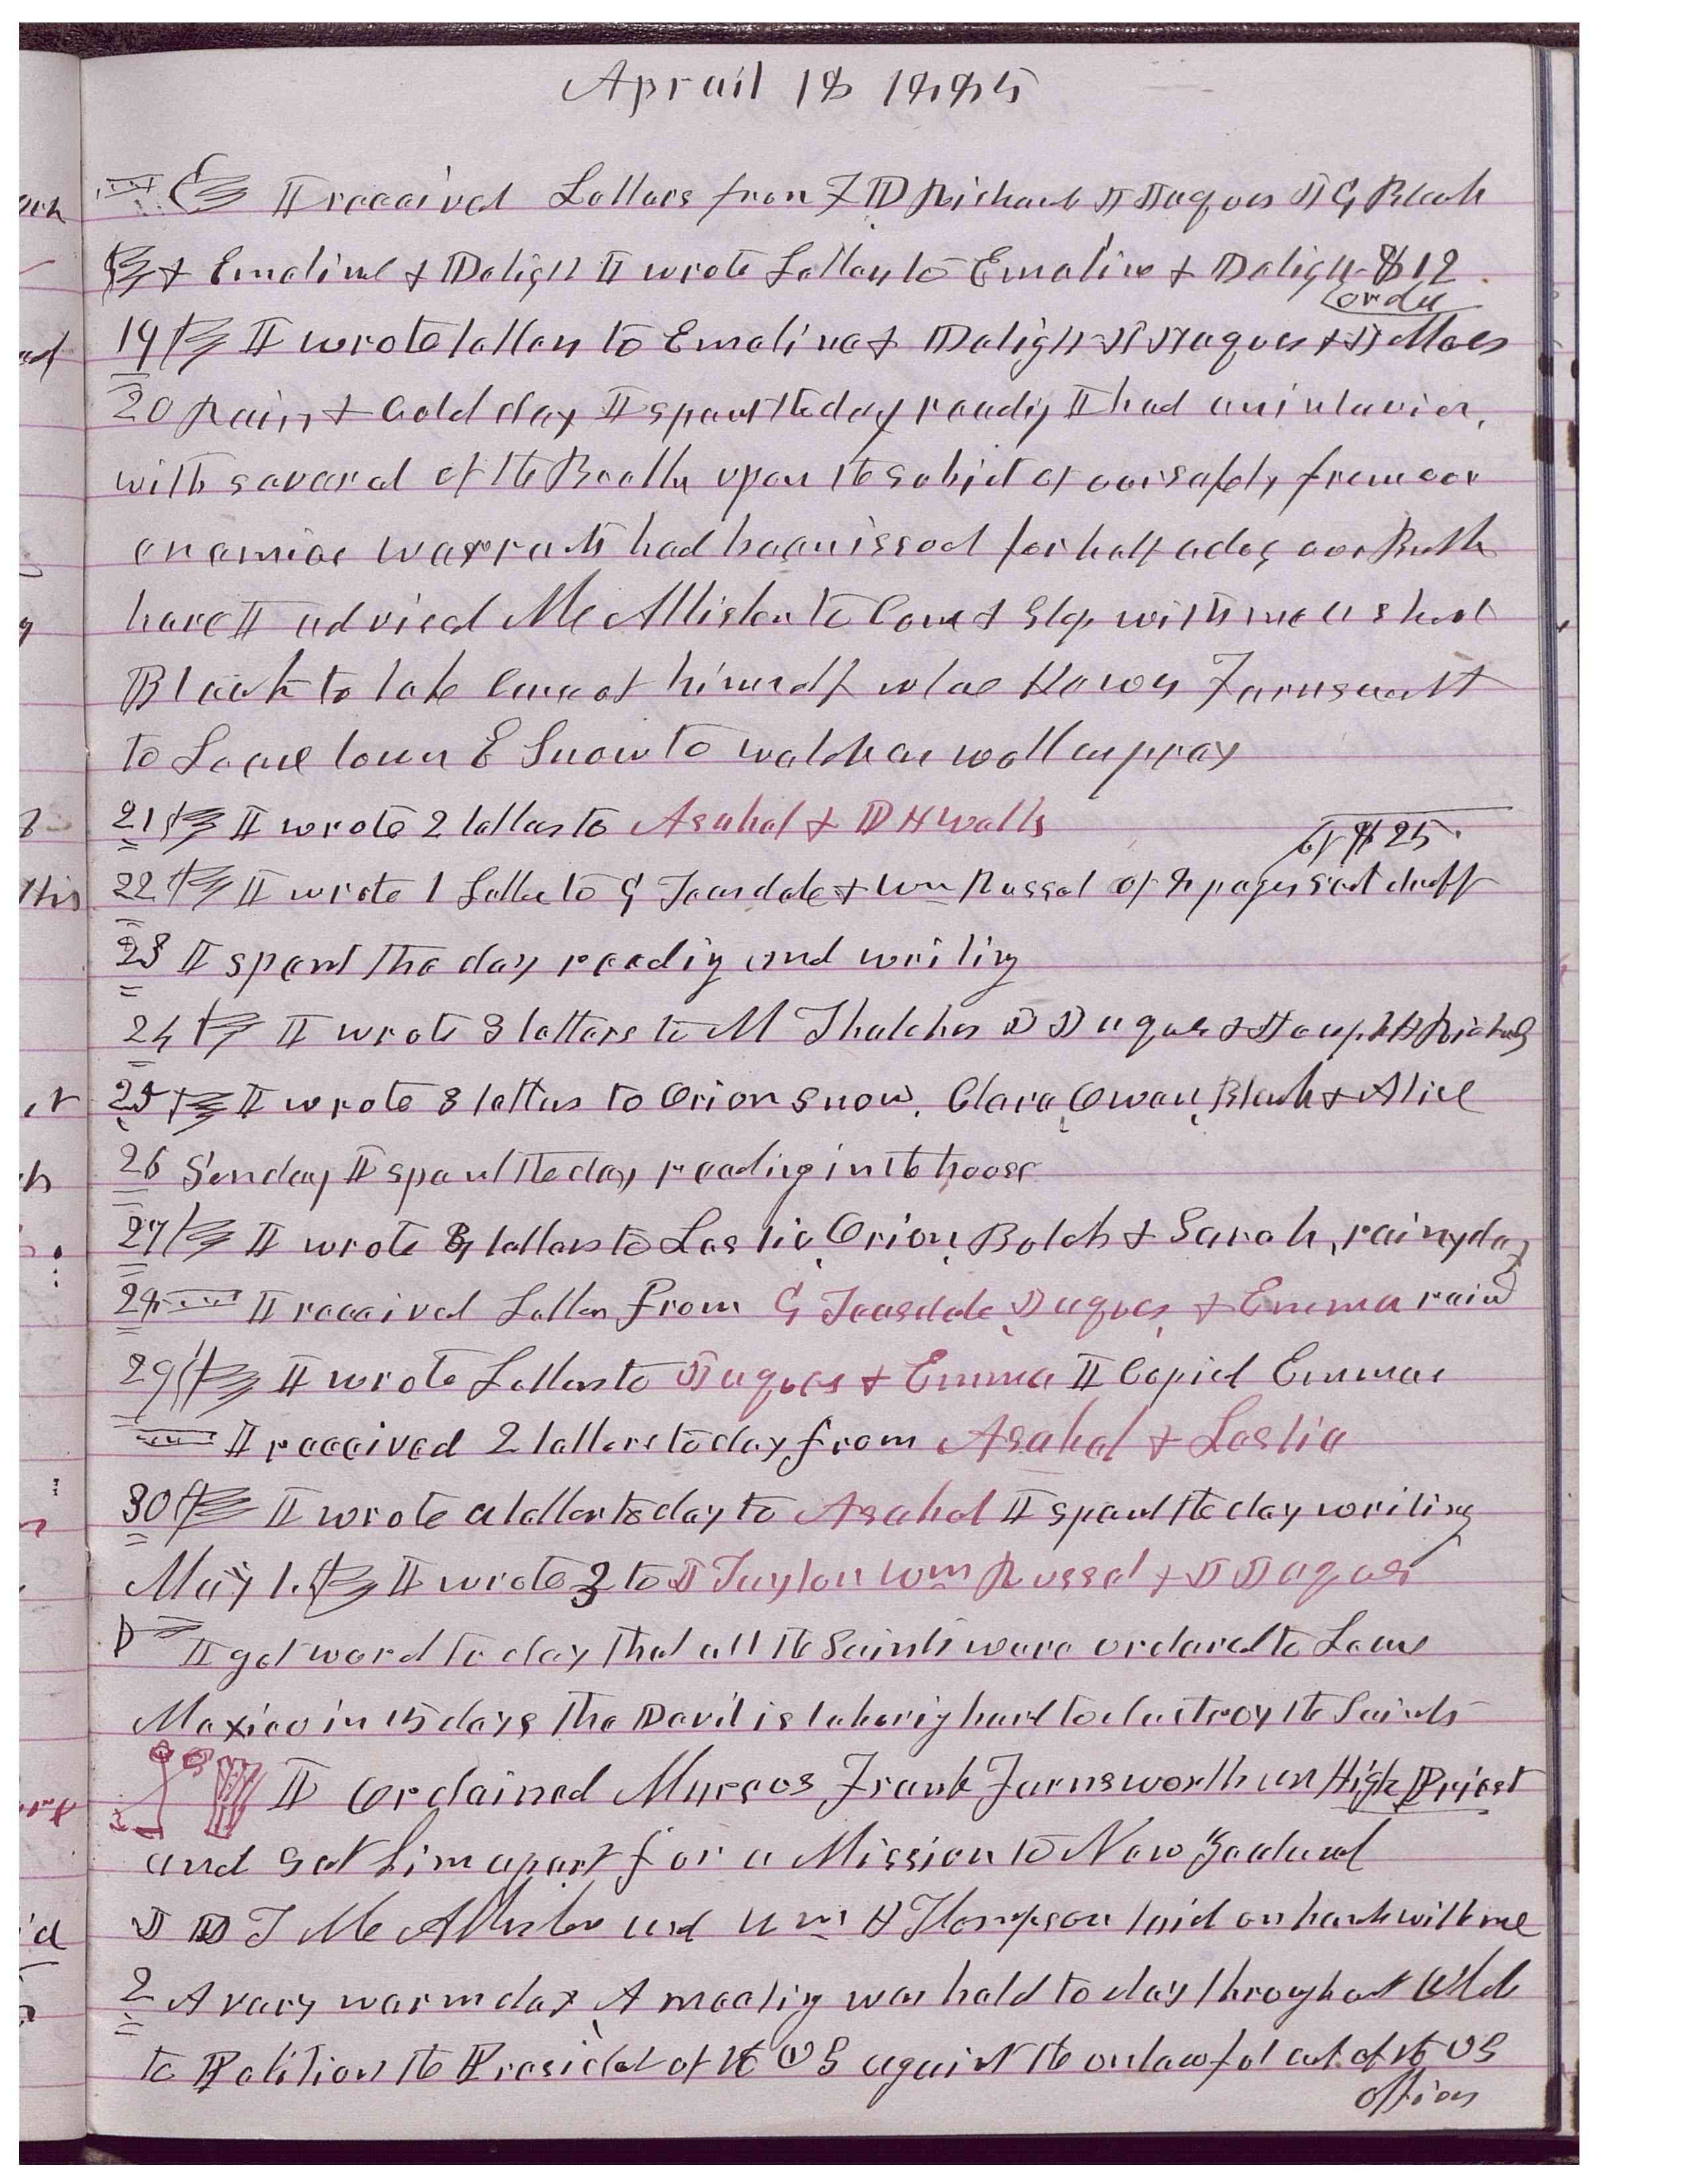 Aprail 18 1885
I received Letters from F D Richards J Jaques J G Bleak
& Emeline & Deligh I wrote Letters to Emeline & Deligh $12
order
19 I wrote letters to Emeline & Deligh J Jaques & J Moses
20 Rain & Cold day I spent the day readig I had an intervier
with several of the Brothr upon the subjet of our safety from our
enemies warrants had been issued for half adoz our Broth
here I advised McAllister to Come & Stop with me
Bleak to take Care of himself Farnsworth
to Leave town E Snow to watch as well as pray
21 I wrote 2 letters to Asahel & D H Wells
of $25
22 I wrote 1 Letter to G Teasdale & Wm Russel of 8 pages sent draft
23 I spent the day readig and writing
24 I wrote 3 letters to M Thatcher J Jaques & Joseph
25 I wrote 3 letters to Orion Snow, Clara, Owen, Bleak & Alice
26 Sunday I spent the day reading in the house
27 I wrote letters to Leslie, Orion, Bulah & Sarah, rainy day
28 I received Letters from G Teasdale, Jaques, & Emma rain
29 I wrote Letters to Jaques & Emma I Copied Emmas
I received 2 letters to day from Asahel & Leslie
30 I wrote a letter to day to Asahel I spent the day writing
May 1. I wrote 3 to J Taylor Wm Russel & J Jaques
I got word to day that all the Saints were ordered to Leave
Mexico in 15 days The Devil is laborig hard to destroy the Saints
I Ordained Marcos Frank Farnsworth an High Priest
and set him apart for a Mission to New Zealand
J D T McAllister and Wm H Thompson laid on hands with me
2 A very warm day, A meetig was held to day throughout Utah
to Petition the Presidet of the US against the unlawful act of the US
officers